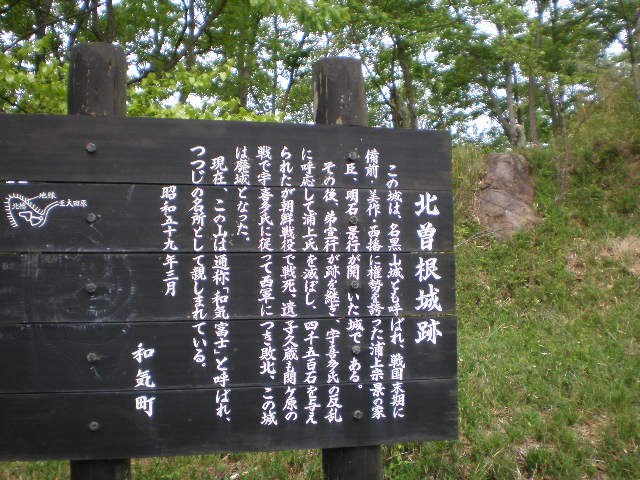 北曽根城跡
この城は、名黒山城とも呼ばれ、戦国末期に
備前、美作、西播に権勢を誇った浦上宗景の家
臣、明石景行が開いた城である。
その後、弟宣行が跡を継ぎ、宇喜多氏の反乱
に呼応して浦上氏を滅ぼし、四千五百石を与え
られたが朝鮮戦役で戦死、遺子久蔵も関ヶ原の
戦で宇喜多氏に従って西軍につき敗北、この城
は廃城となった。
現在、この山は通称「和気富士」と呼ばれ、
つつじの名所として親しまれている。
昭和五十九年三月
和気町
至大田原
地蔵
北曽